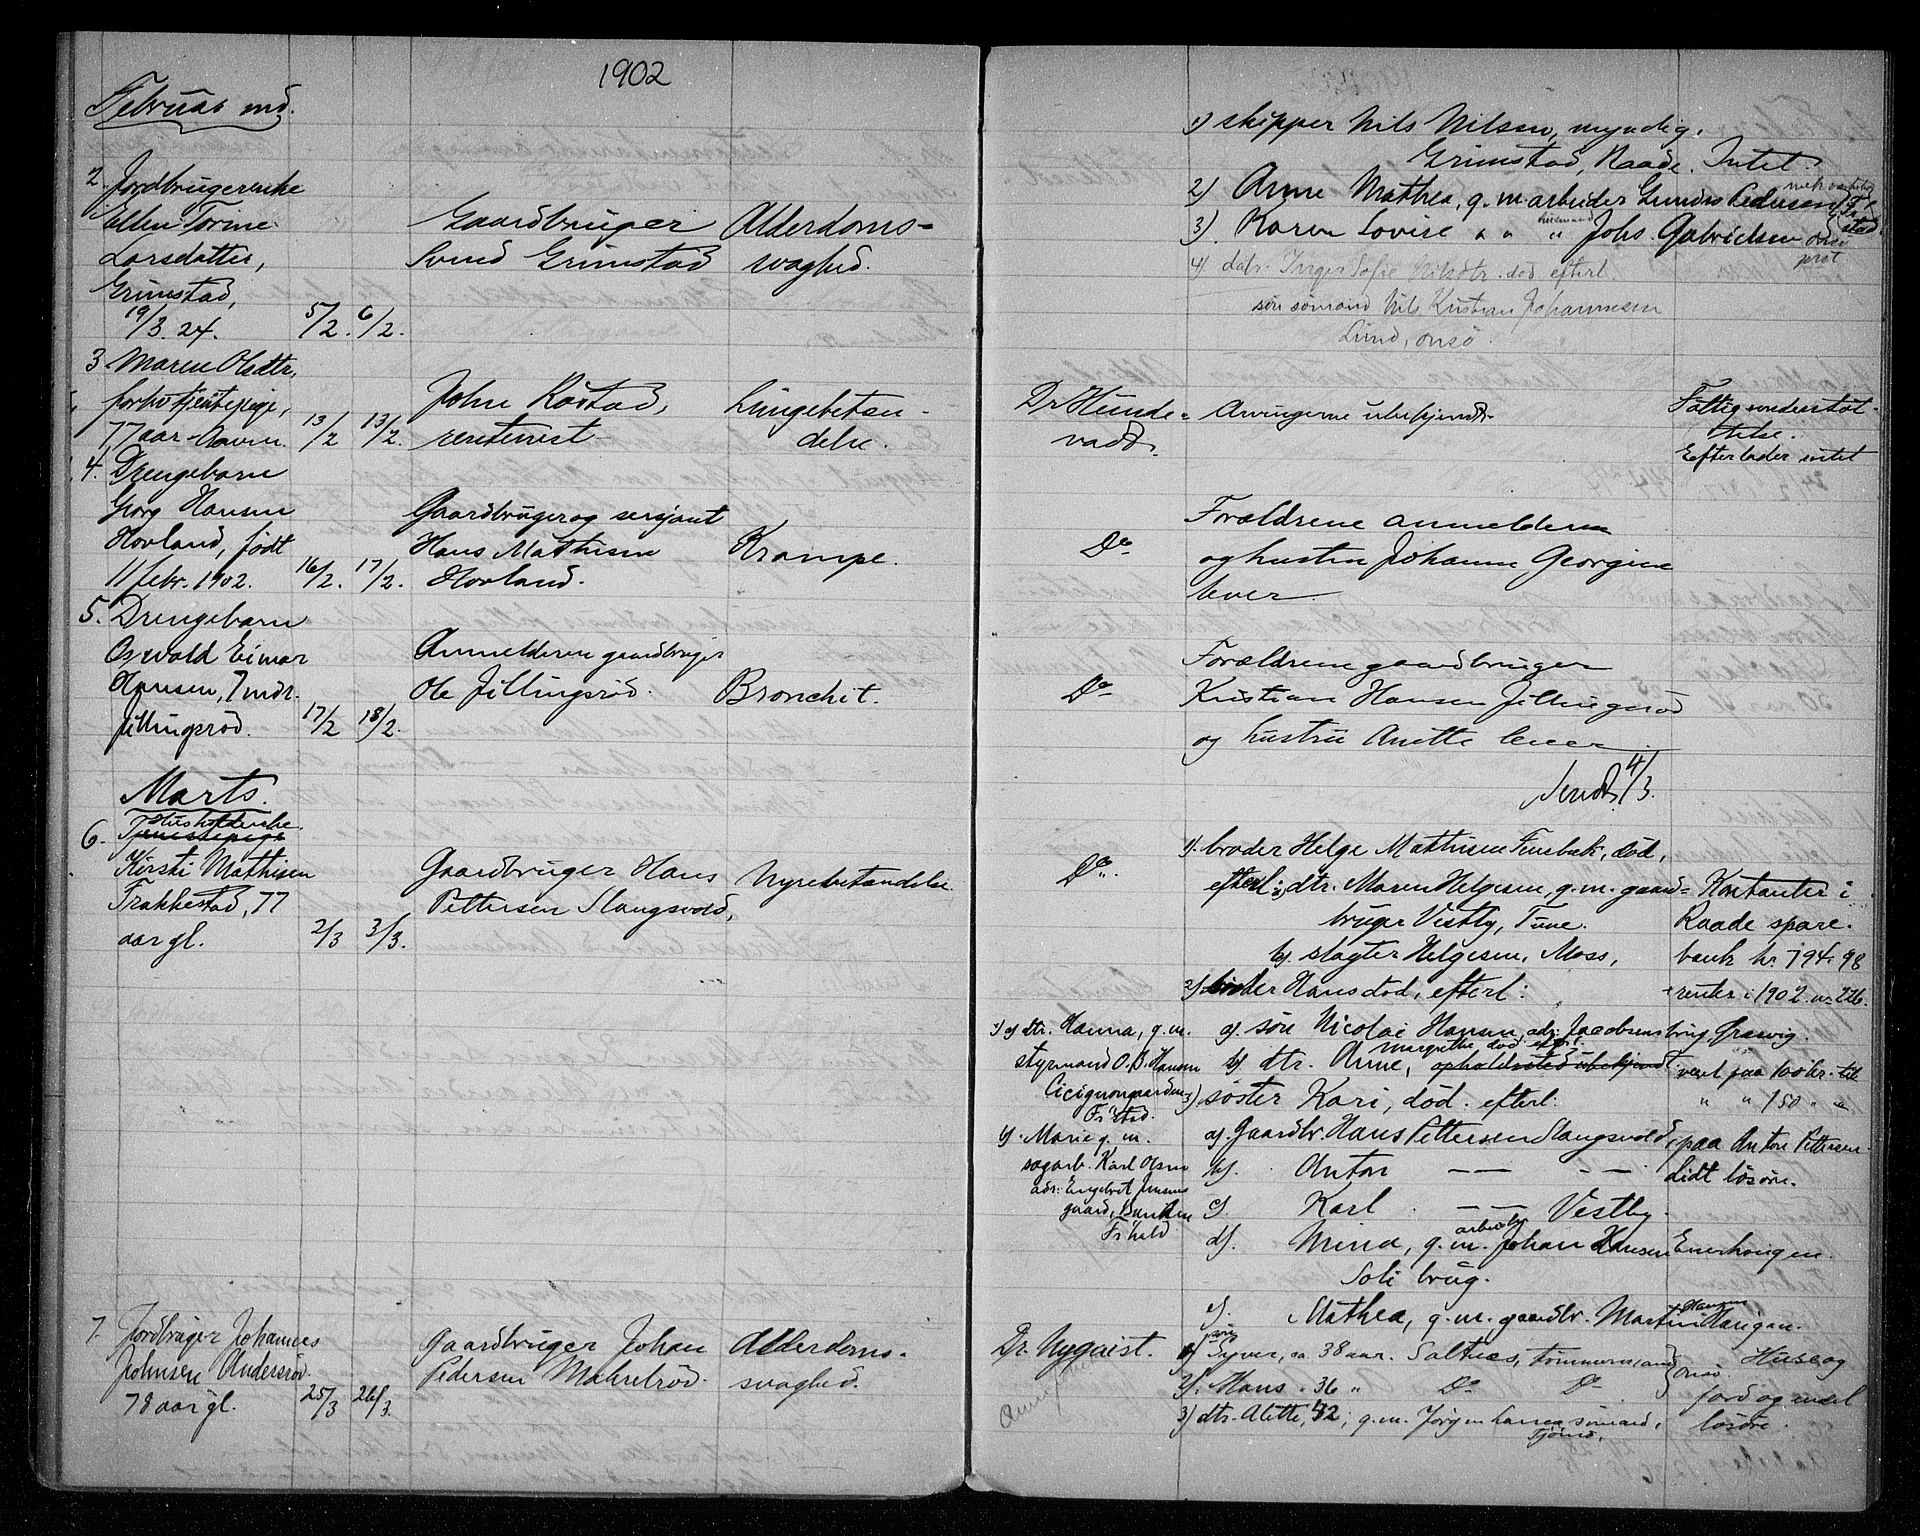 1902
Februar md.
2. Jordbrugerenke
Ellen Torine
Larsdatter,
Grimstad,
19/3. 24. 5/2. 6/2.
Gaardbruger
Svend Grimstad
Alderdoms-
svaghed.
1) skipper Nils Nilsen, myndig.
Grimstad, Raade. Intet.
2) Anne Mathea, g.m. arbeider Gunder Pedersen
3). Karen Lovise " " " husmand Johs. Gabrielsen onsø
prst
4) datr. Inger Sofie Nilsdtr. død efterl.
søn sømand Nils Kristian Johannesen
Lund, onsø.
3. Maren Olsdtr,
forhv. tjenstepige,
77 aar - Aaven. 13/2 13/2.
John Kostad,
Lungebetæn-
delse.
Dr Hunde-
vadt.
Arvingerne ubekjendt
Fattigunderstøt-
telse.
Efterlader intet
4. Drengebarn
Georg Hansen
Hovland, født
11 febr. 1902. 16/2. 17/2.
Gaardbruger og sersjant
Hans Mathisen
Hovland.
Krampe.
Do
Forældrene anmelderen
og hustru Johanne Georgine
lever.
5. Drengebarn
Osvald Eimar
Hansen, 7 mdr.
Jillingsrød. 17/2 18/2.
Anmelderen gaardbruger
Ole Jillingsrød.
Bronchit.
Do
Forældrene gaardbruger
Kristian Hansen Jillingsrød
og hustru Anette lever
Sendt 4/3.
Marts.
Husholderske
6. Tjenstepige
Kirsti Mathisen
Frakkestad, 77
aar gl. 2/3 3/3.
Gaardbruger Hans
Pettersen Slangsvold,
Nyrebetændelse
Do.
1). broder Helge Mathisen Funsbæk, død,
efterl: a) dtr. Maren Helgesen, g.m. gaard-
bruger Vestby, Tune.
b). slagter Helgesen, Moss,
2) broder Hans død, efterl:
a) søn Nicolai Hansen, adr: Jacobsens brug, Græsvig.
Margrethe død efterl.
b) dtr. Anne, opholdssted ubekjendt.
3) søster Kari, død. efterl:
a). Gaardbr. Hans Pettersen Slangsvold,
b). Anton — — — —
c) Karl — — Vestby.
d). Mina, g.m. arbeider Johan Hansen Enerhaugen
Soli brug.
e). Mathea, g.m. gaardbr. Martin Hansen Haugan.
Kontanter i
Raade spare-
bank kr. 794. 98
+ renter i 1902. nr. 226.
vexel paa 100 kr. til
" " 150 " "
paa Anton Pettersen.
Lidt løsøre.
1) a) dtr. Hanna, g.m.
styrmand O. B. Hansen
Cicignongaarden
Fr.stad.
b). Marie g.m.
sagarb. Karl Olsen
adr: Engebret Jensens
gaard,
Fr.hald
7. Jordbruger Johannes
Johnsen Andersrød.
78 aar gl. 25/3 26/3.
Gaardbruger Johan
Pedersen Makrelrød.
Alderdoms-
svaghed.
Dr. Nyqvist.
1) søn Syver, ca. 38 aar. Saltnes, tømmermand
2). Hans " 36 " Do Do
onsø.
3) dtr. Alette, 42, g.m. Jørgen Larsen sømand,
Tjømø.
Huse og
jord og endel
løsøre.